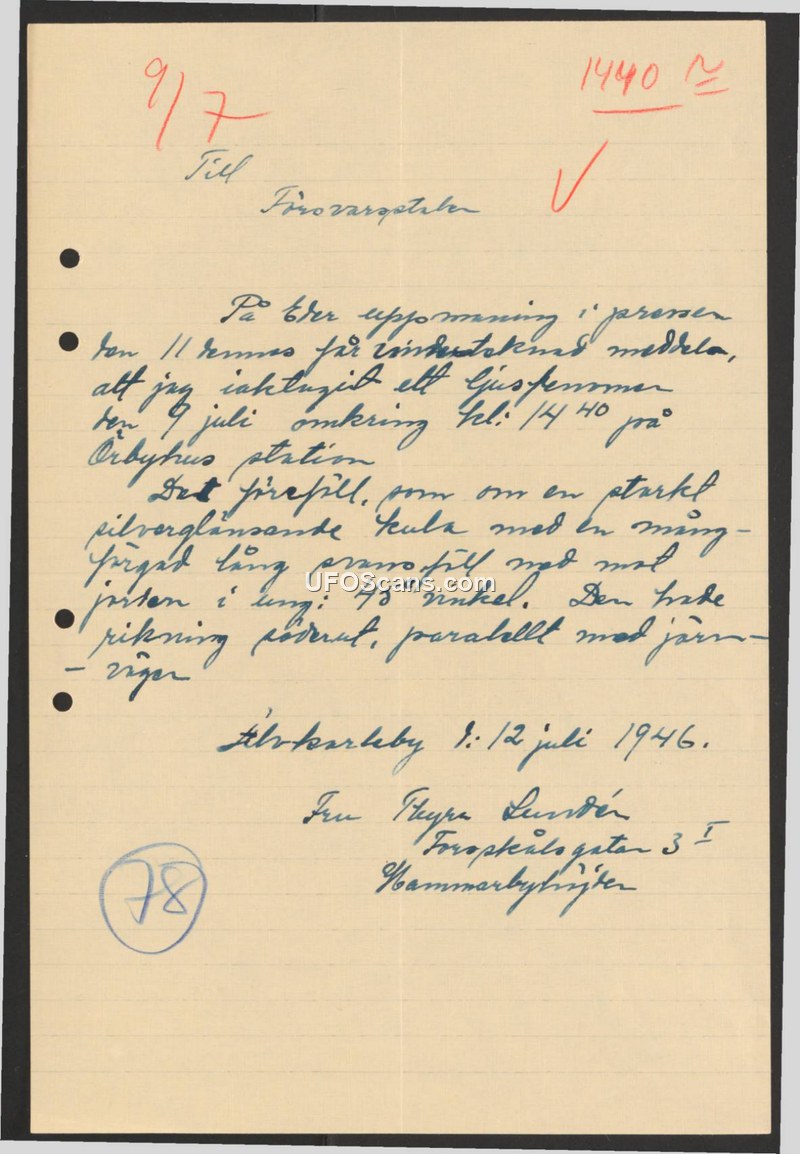 9/7
1440 N
Till
Försvarsstaben
På Eder uppmaning i pressen
den 11 dennes får underteknad meddela,
att jag iaktagit ett ljusfenomen
den 9 juli omkring kl: 14 40 på
Örbyhus station
Det föreföll, som om en starkt
silverglänsande kula med en mång-
färgad lång svans föll ned mot
jorden i ung: 45° vinkel. Den hade
rikning söderut, paralellt med järn-
- vägen
UFOScans.com
Älvkarleby d: 12 juli 1946.
Fru Thyra Lundén
Forsskålsgatan 3 I
Hammarbyhöjden
78